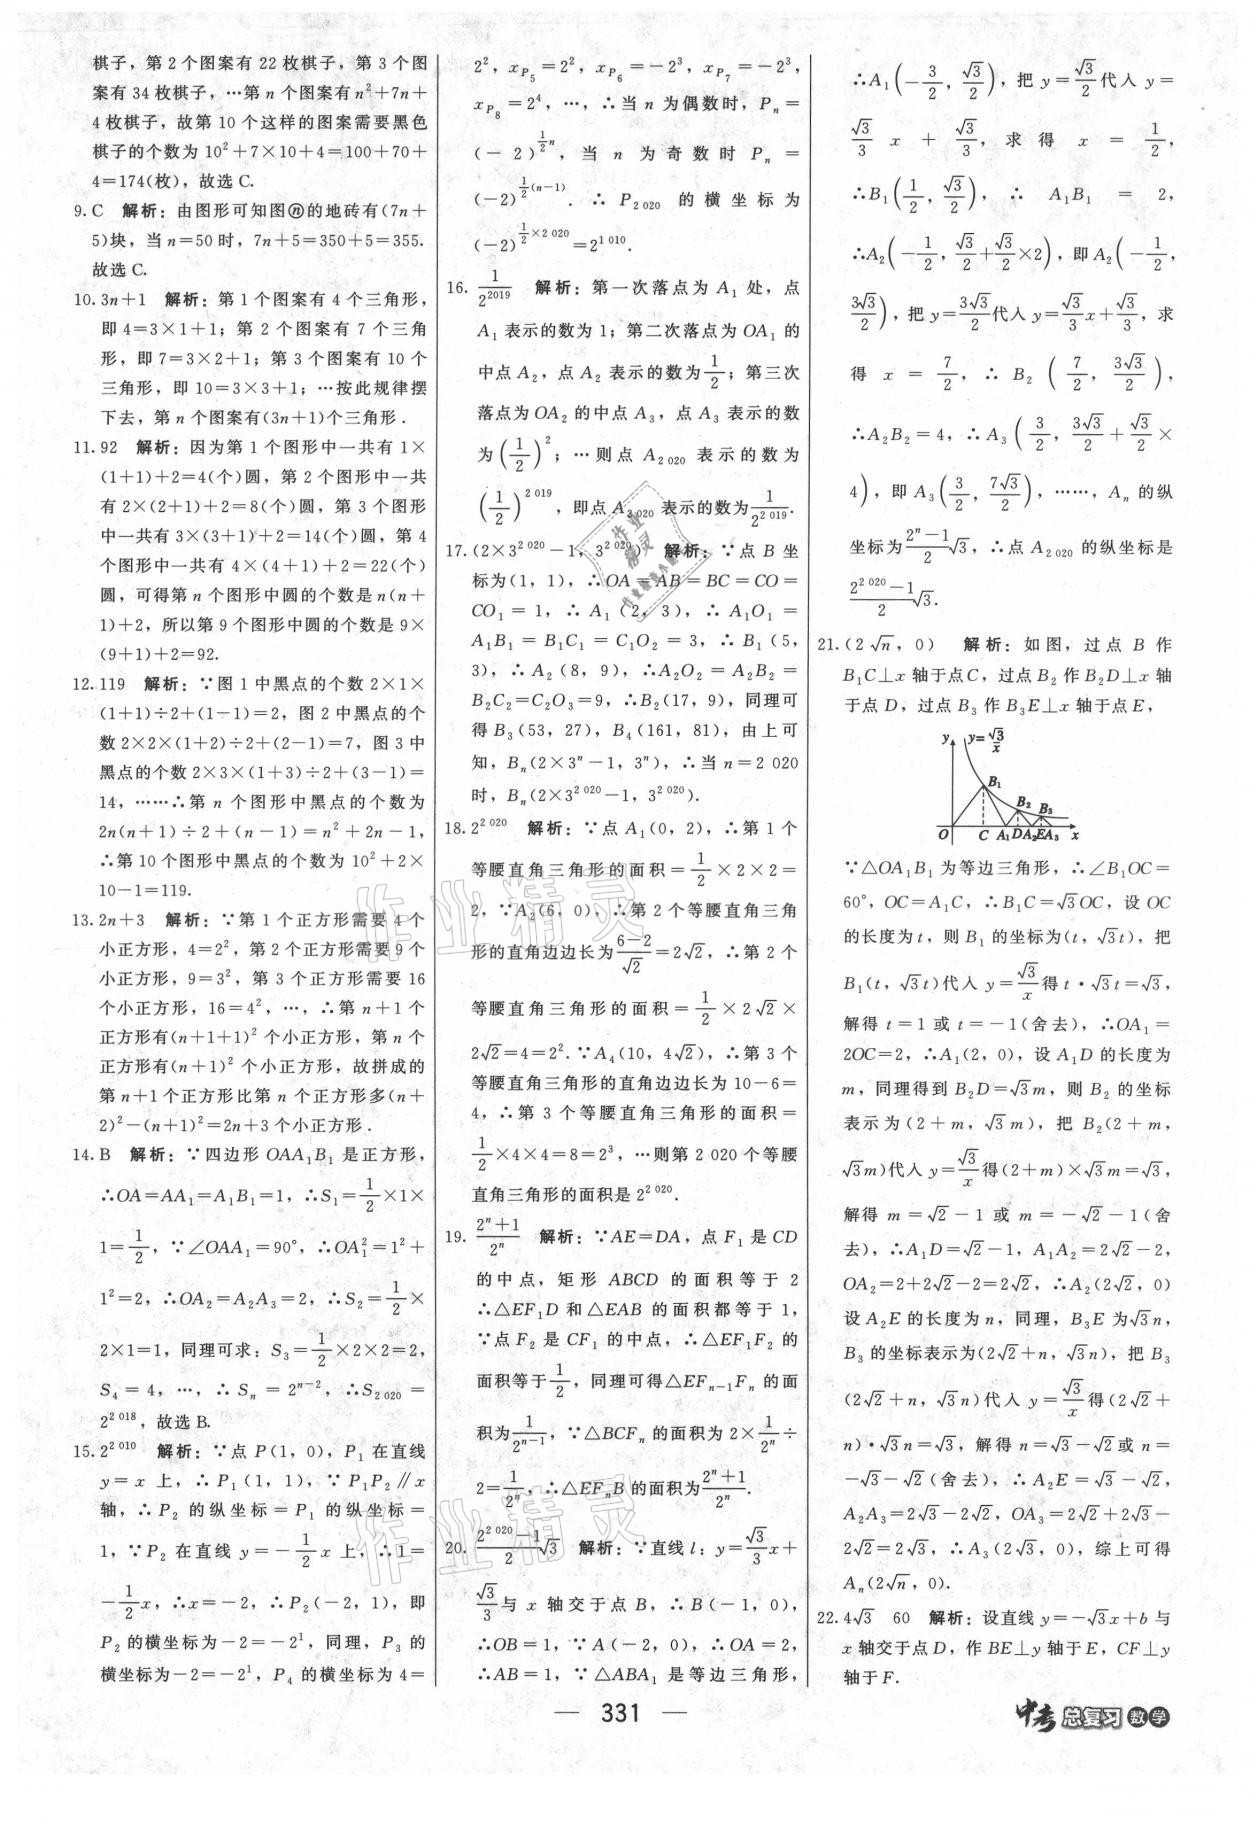 棋子，第 2 个图案有 22 枚棋子，第 3 个图
案有 34 枚棋子，…第 n 个图案有 n²+7n+
4 枚棋子，故第 10 个这样的图案需要黑色
棋子的个数为 10²+7×10+4=100+70+
4=174(枚)，故选 C.
9. C 解析：由图形可知图ⓝ的地砖有(7n+
5)块，当 n=50 时，7n+5=350+5=355.
故选 C.
10. 3n+1 解析：第 1 个图案有 4 个三角形，
即 4=3×1+1；第 2 个图案有 7 个三角
形，即 7=3×2+1；第 3 个图案有 10 个
三角形，即 10=3×3+1；…按此规律摆
下去，第 n 个图案有(3n+1)个三角形.
11. 92 解析：因为第 1 个图形中一共有 1×
(1+1)+2=4(个)圆，第 2 个图形中一共
有 2×(2+1)+2=8(个)圆，第 3 个图形
中一共有 3×(3+1)+2=14(个)圆，第 4
个图形中一共有 4×(4+1)+2=22(个)
圆，可得第 n 个图形中圆的个数是 n(n+
1)+2，所以第 9 个图形中圆的个数是 9×
(9+1)+2=92.
12. 119 解析：∵图 1 中黑点的个数 2×1×
(1+1)÷2+(1−1)=2，图 2 中黑点的个
数 2×2×(1+2)÷2+(2−1)=7，图 3 中
黑点的个数 2×3×(1+3)÷2+(3−1)=
14，……∴第 n 个图形中黑点的个数为
2n(n+1)÷2+(n−1)=n²+2n−1，
∴第 10 个图形中黑点的个数为 10²+2×
10−1=119.
13. 2n+3 解析：∵第 1 个正方形需要 4 个
小正方形，4=2²，第 2 个正方形需要 9 个
小正方形，9=3²，第 3 个正方形需要 16
个小正方形，16=4²，…，∴第 n+1 个
正方形有(n+1+1)² 个小正方形，第 n 个
正方形有(n+1)² 个小正方形，故拼成的
第 n+1 个正方形比第 n 个正方形多(n+
2)²−(n+1)²=2n+3 个小正方形.
14. B 解析：∵四边形 OAA₁B₁ 是正方形，
∴OA=AA₁=A₁B₁=1，∴S₁=1/2×1×
1=1/2，∵∠OAA₁=90°，∴OA₁²=1²+
1²=2，∴OA₂=A₂A₃=2，∴S₂=1/2×
2×1=1，同理可求：S₃=1/2×2×2=2，
S₄=4，…，∴Sₙ=2ⁿ⁻²，∴S₂₀₂₀=
2²⁰¹⁸，故选 B.
15. 2¹⁰¹⁰ 解析：∵点 P(1，0)，P₁ 在直线
y=x 上，∴P₁(1，1)，∵P₁P₂∥x
轴，∴P₂ 的纵坐标=P₁ 的纵坐标=
1，∵P₂ 在直线 y=−1/2x 上，∴1=
−1/2x，∴x=−2，∴P₂(−2，1)，即
P₂ 的横坐标为−2=−2¹，同理，P₃ 的
横坐标为−2=−2¹，P₄ 的横坐标为 4=
2²，x_P₅=2²，x_P₆=−2³，x_P₇=−2³，
x_P₈=2⁴，…，∴当 n 为偶数时，Pₙ=
(−2)^(1/2 n)，当 n 为奇数时 Pₙ=
(−2)^(1/2(n−1)). ∴P₂₀₂₀ 的横坐标为
(−2)^(1/2×2020)=2¹⁰¹⁰.
16. 1/2²⁰¹⁹ 解析：第一次落点为 A₁ 处，点
A₁ 表示的数为 1；第二次落点为 OA₁ 的
中点 A₂，点 A₂ 表示的数为1/2；第三次
落点为 OA₂ 的中点 A₃，点 A₃ 表示的数
为(1/2)²；…则点 A₂₀₂₀ 表示的数为
(1/2)²⁰¹⁹，即点 A₂₀₂₀ 表示的数为1/2²⁰¹⁹.
17. (2×3²⁰²⁰−1，3²⁰²⁰) 解析：∵点 B 坐
标为(1，1)，∴OA=AB=BC=CO=
CO₁=1，∴A₁(2，3)，∴A₁O₁=
A₁B₁=B₁C₁=C₁O₂=3，∴B₁(5，
3)，∴A₂(8，9)，∴A₂O₂=A₂B₂=
B₂C₂=C₂O₃=9，∴B₂(17，9)，同理可
得 B₃(53，27)，B₄(161，81)，由上可
知，Bₙ(2×3ⁿ−1，3ⁿ)，∴当 n=2 020
时，Bₙ(2×3²⁰²⁰−1，3²⁰²⁰).
18. 2²⁰²⁰ 解析：∵点 A₁(0，2)，∴第 1 个
等腰直角三角形的面积=1/2×2×2=
2，∵A₂(6，0)，∴第 2 个等腰直角三角
形的直角边边长为(6−2)/√2=2√2，∴第 2 个
等腰直角三角形的面积=1/2×2√2×
2√2=4=2². ∵A₄(10，4√2)，∴第 3 个
等腰直角三角形的直角边边长为 10−6=
4，∴第 3 个等腰直角三角形的面积=
1/2×4×4=8=2³，…则第 2 020 个等腰
直角三角形的面积是 2²⁰²⁰.
19. (2ⁿ+1)/2ⁿ 解析：∵AE=DA，点 F₁ 是 CD
的中点，矩形 ABCD 的面积等于 2
∴△EF₁D 和△EAB 的面积都等于 1，
∵点 F₂ 是 CF₁ 的中点，∴△EF₁F₂ 的
面积等于1/2，同理可得△EFₙ₋₁Fₙ 的面
积为1/2ⁿ⁻¹，∵△BCFₙ 的面积为 2×1/2ⁿ÷
2=1/2ⁿ，∴△EFₙB 的面积为(2ⁿ+1)/2ⁿ.
20. (2²⁰²⁰−1)/2√3 解析：∵直线 l：y=√3/3x+
√3/3与 x 轴交于点 B，∴B(−1，0)，
∴OB=1，∵A(−2，0)，∴OA=2，
∴AB=1，∵△ABA₁ 是等边三角形，
∴A₁(−3/2，√3/2)，把 y=√3/2代入 y=
√3/3x+√3/3，求得 x=1/2，
∴B₁(1/2，√3/2)，∴A₁B₁=2，
∴A₂(−1/2，√3/2+√3/2×2)，即 A₂(−1/2，
3√3/2)，把 y=3√3/2代入 y=√3/3x+√3/3，求
得 x=7/2，∴B₂(7/2，3√3/2)，
∴A₂B₂=4，∴A₃(3/2，3√3/2+√3/2×
4)，即 A₃(3/2，7√3/2)，……，Aₙ 的纵
坐标为(2ⁿ−1)/2√3，∴点 A₂₀₂₀ 的纵坐标是
(2²⁰²⁰−1)/2√3.
21. (2√n，0) 解析：如图，过点 B 作
B₁C⊥x 轴于点C，过点 B₂ 作B₂D⊥x 轴
于点 D，过点 B₃ 作 B₃E⊥x 轴于点 E，
y y=√3/x
B₁
B₂ B₃
O C A₁ D A₂ E A₃ x
∵△OA₁B₁ 为等边三角形，∴∠B₁OC=
60°，OC=A₁C，∴B₁C=√3OC，设 OC
的长度为 t，则 B₁ 的坐标为(t，√3t)，把
B₁(t，√3t)代入 y=√3/x得 t·√3t=√3，
解得 t=1 或 t=−1(舍去)，∴OA₁=
2OC=2，∴A₁(2，0)，设 A₁D 的长度为
m，同理得到 B₂D=√3m，则 B₂ 的坐标
表示为(2+m，√3m)，把 B₂(2+m，
√3m)代入 y=√3/x得(2+m)×√3m=√3，
解得 m=√2−1 或 m=−√2−1(舍
去)，∴A₁D=√2−1，A₁A₂=2√2−2，
OA₂=2+2√2−2=2√2，∴A₂(2√2，0)
设 A₂E 的长度为 n，同理，B₃E 为√3n，
B₃ 的坐标表示为(2√2+n，√3n)，把 B₃
(2√2+n，√3n)代入 y=√3/x得(2√2+
n)·√3n=√3，解得 n=√3−√2或 n=
−√3−√2(舍去)，∴A₂E=√3−√2，
A₂A₃=2√3−2√2，OA₃=2√2+2√3−
2√2=2√3，∴A₃(2√3，0)，综上可得
Aₙ(2√n，0).
22. 4√3 60 解析：设直线 y=−√3x+b 与
x 轴交于点 D，作 BE⊥y 轴于 E，CF⊥y
轴于 F.
— 331 —
中考 总复习 数学
作业精灵
作业精灵